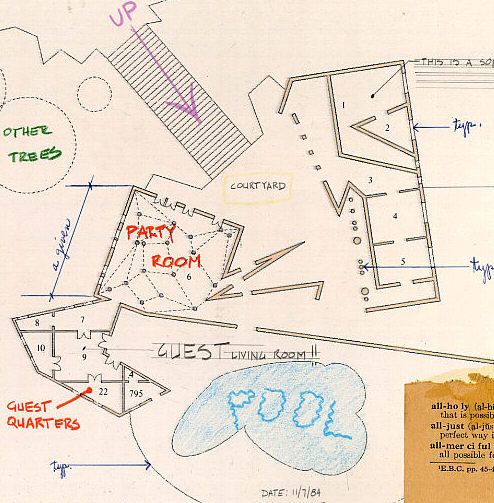 UP
THIS IS A SOF
1
2
typ.
OTHER
TREES
3
COURTYARD
4
a given
PARTY
ROOM
6
5
typ.
8
7
10
9
GUEST LIVING ROOM !!
A
22
795
GUEST
QUARTERS
POOL
typ.
DATE: 11/7/84
all-ho ly (al-hō
that is possib
all-just (al-jŭs
perfect way i
all-mer ci ful
all possible fo
¹E.B.C. pp. 45-4